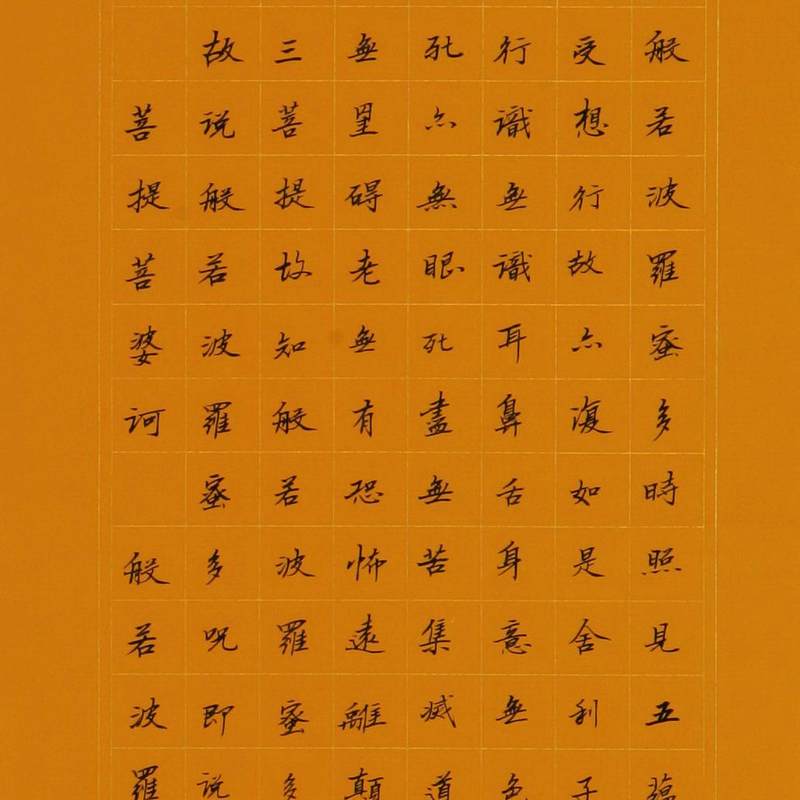 般若波羅蜜多時照見五蘊
受想行故亦復如是舍利子
行識無識耳鼻舌身意無色
死亦無眼死盡無苦集滅道
無罣碍老無有恐怖遠離顛
三菩提故知般若波羅蜜多
故说般若波羅蜜多呪即说
菩提菩婆诃 般若波羅